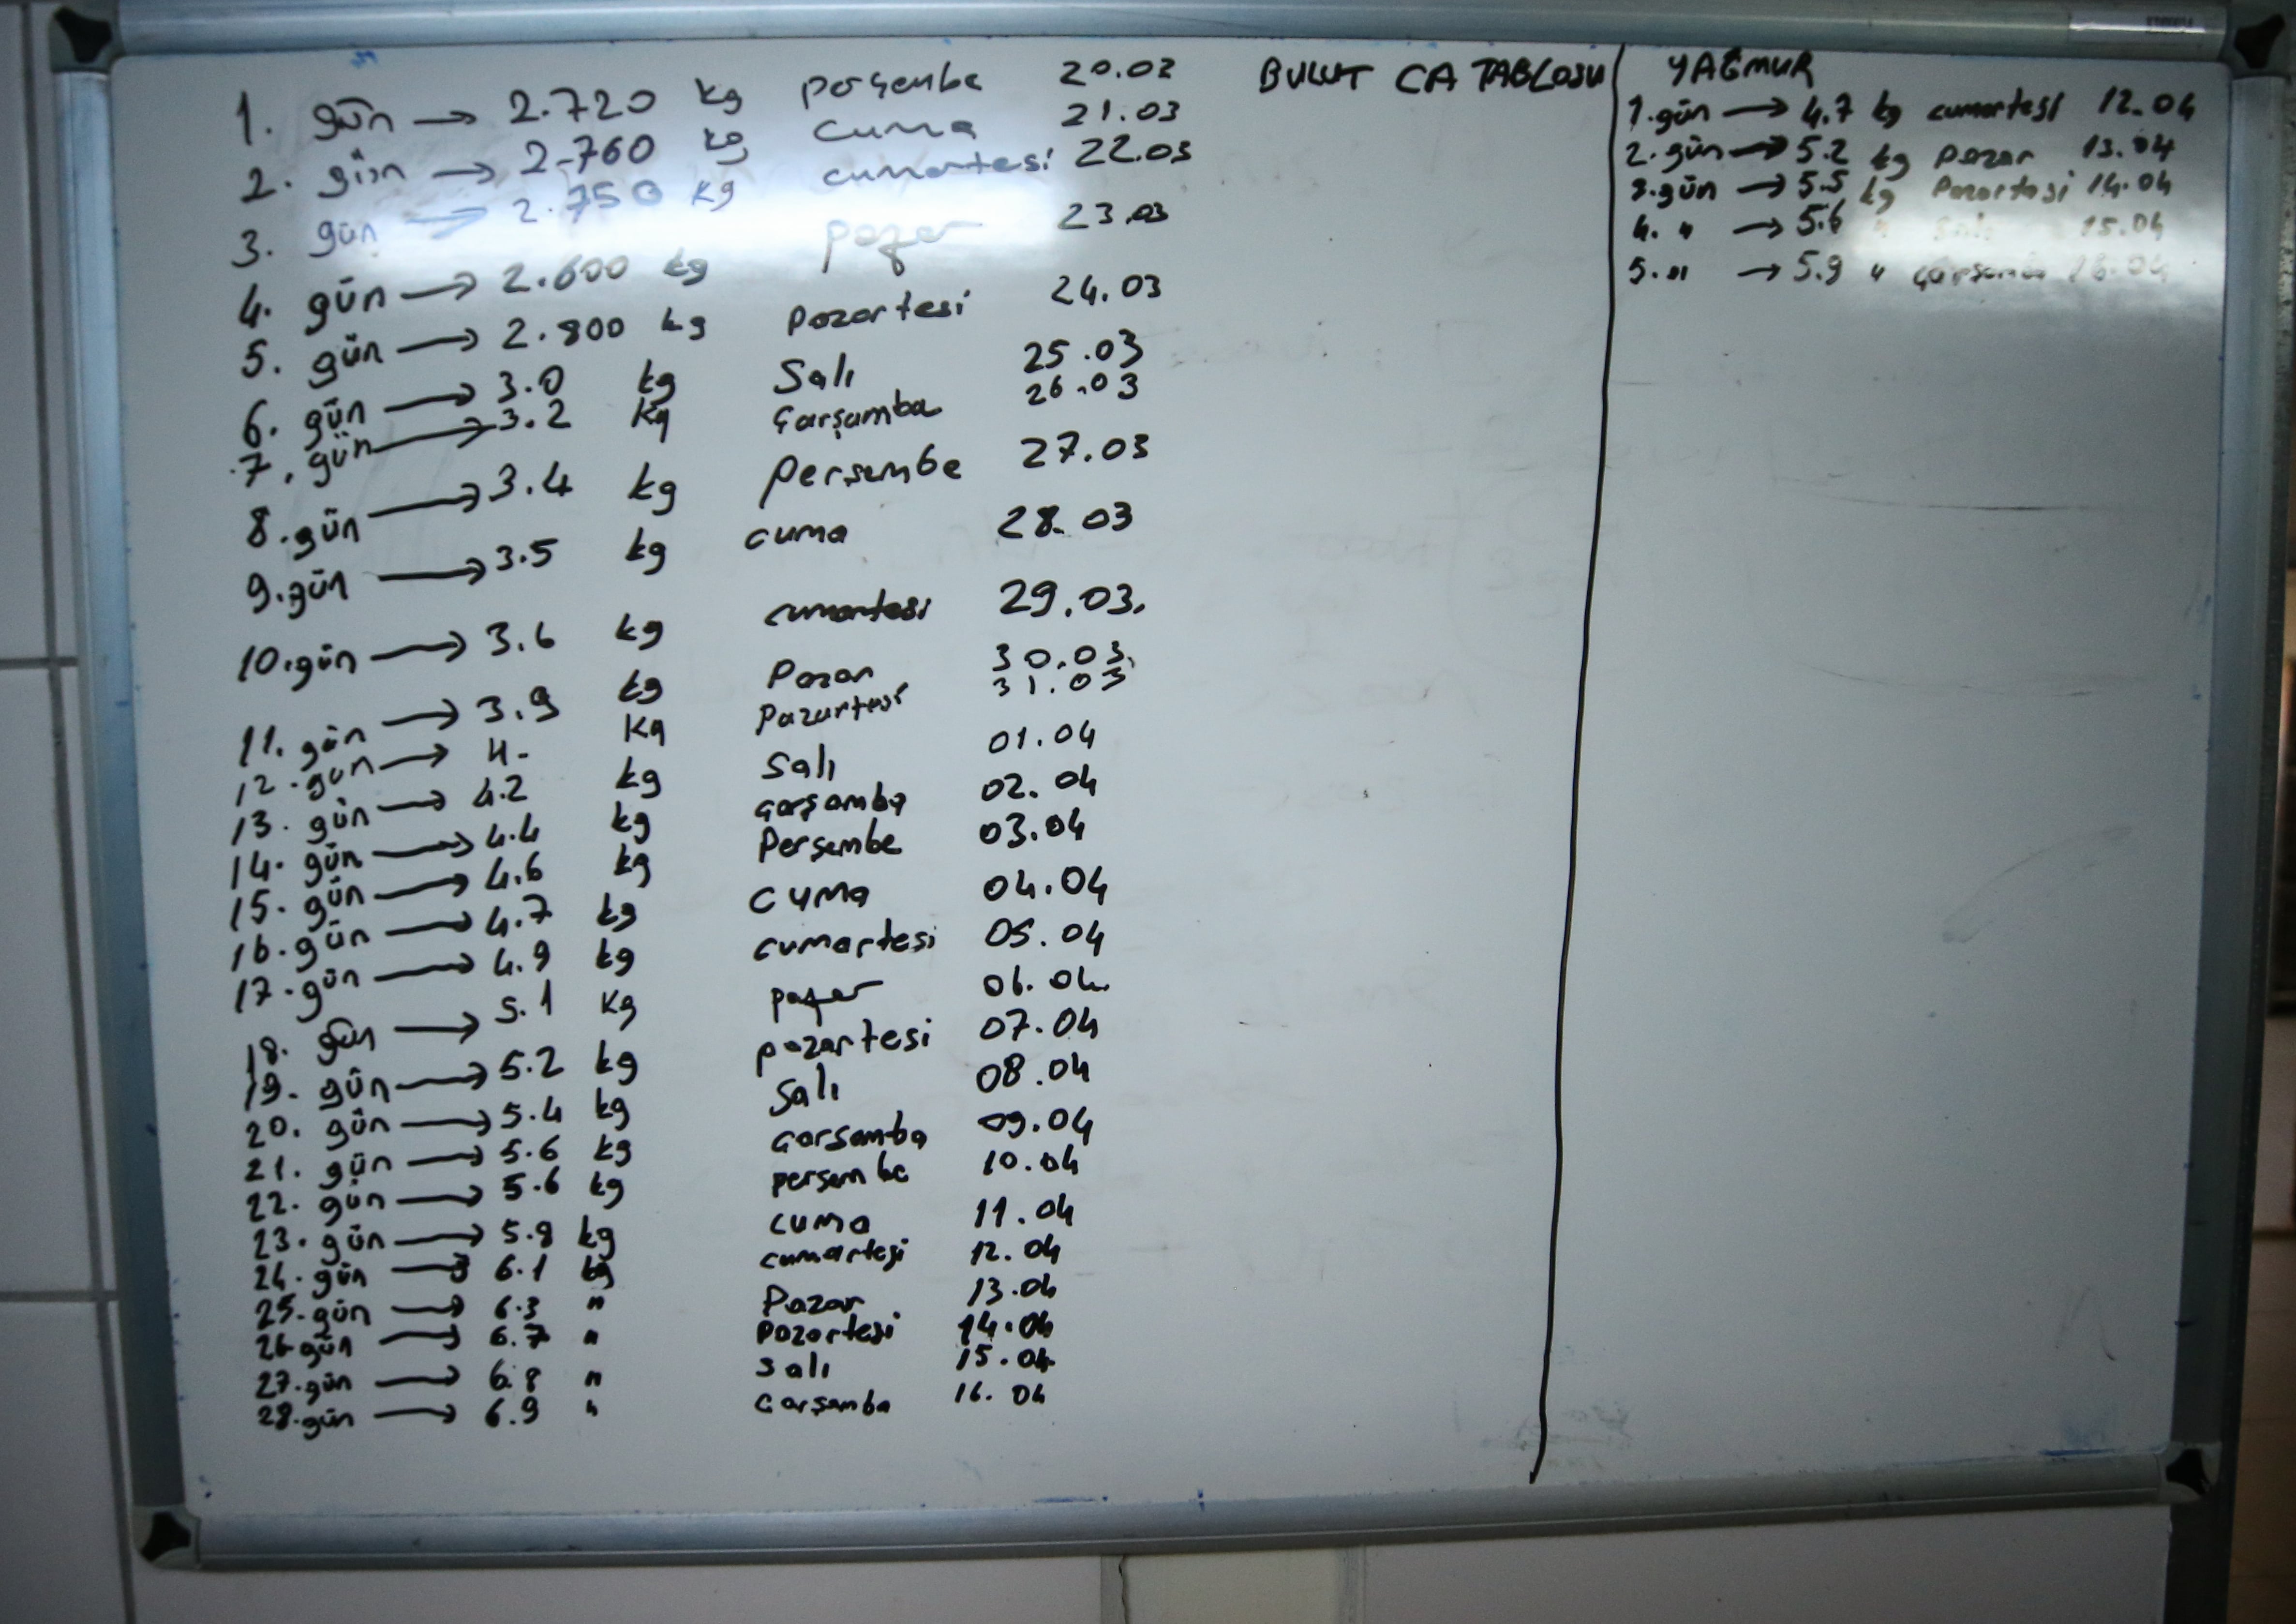 BULUT CA TABLOSU
1. gün → 2.720 kg perşembe 20.03
2. gün → 2.760 kg cuma 21.03
3. gün → 2.750 kg cumartesi 22.03
4. gün → 2.600 kg pazar 23.03
5. gün → 2.800 kg pazartesi 24.03
6. gün → 3.0 kg Salı 25.03
7. gün → 3.2 kg Çarşamba 26.03
8. gün → 3.4 kg Perşembe 27.03
9. gün → 3.5 kg cuma 28.03
10. gün → 3.6 kg cumartesi 29.03.
11. gün → 3.9 kg Pazar 30.03.
12. gün → 4. Kg Pazartesi 31.03
13. gün → 4.2 kg Salı 01.04
14. gün → 4.4 kg Çarşamba 02.04
15. gün → 4.6 kg Persembe 03.04
16. gün → 4.7 kg cuma 04.04
17. gün → 4.9 kg cumartesi 05.04
18. gün → 5.1 Kg pazar 06.04.
19. gün → 5.2 kg pazartesi 07.04
20. gün → 5.4 kg Salı 08.04
21. gün → 5.6 kg Çarsamba 09.04
22. gün → 5.6 kg persembe 10.04
23. gün → 5.9 kg cuma 11.04
24. gün → 6.1 kg cumartesi 12.04
25. gün → 6.3 " Pazar 13.04
26 gün → 6.7 " pazartesi 14.04
27. gün → 6.8 " Salı 15.04
28. gün → 6.9 " Çarşamba 16.04
YAĞMUR
1. gün → 4.7 kg cumartesi 12.04
2. gün → 5.2 kg pazar 13.04
3. gün → 5.5 kg Pazartesi 14.04
4. " → 5.6 " Salı 15.04
5. " → 5.9 " Çarşamba 16.04